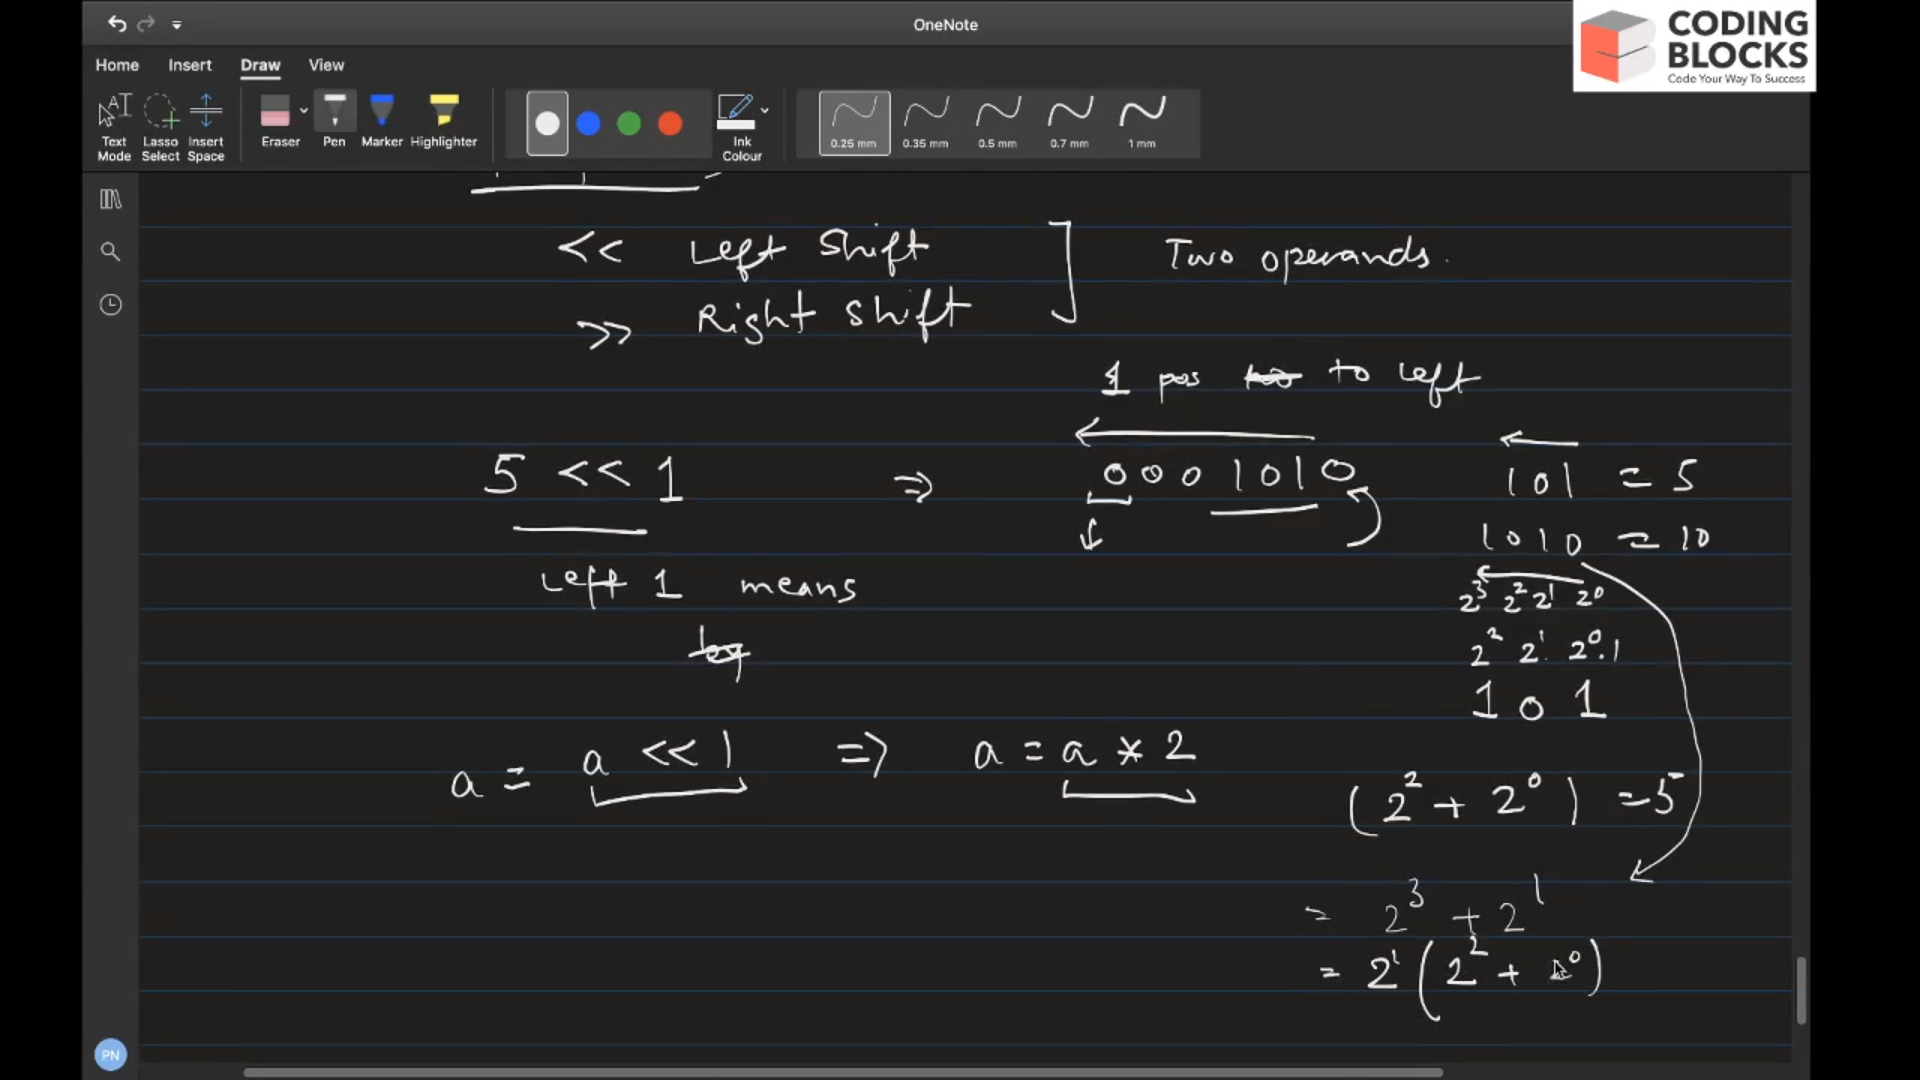 OneNote
CODING
BLOCKS
Code Your Way To Success
Home Insert Draw View
Text Mode
Lasso Select
Insert Space
Eraser
Pen
Marker
Highlighter
Ink Colour
0.25 mm
0.35 mm
0.5 mm
0.7 mm
1 mm
<< Left Shift
>> Right Shift
Two operands.
1 pos to left
5 << 1 => 0001010
101 = 5
1010 = 10
Left 1 means
2^3 2^2 2^1 2^0
2^2 2^1 2^0.1
1 0 1
a = a << 1 => a = a * 2
(2^2 + 2^0) = 5
= 2^3 + 2^1
= 2^1 (2^2 + 2^0)
PN